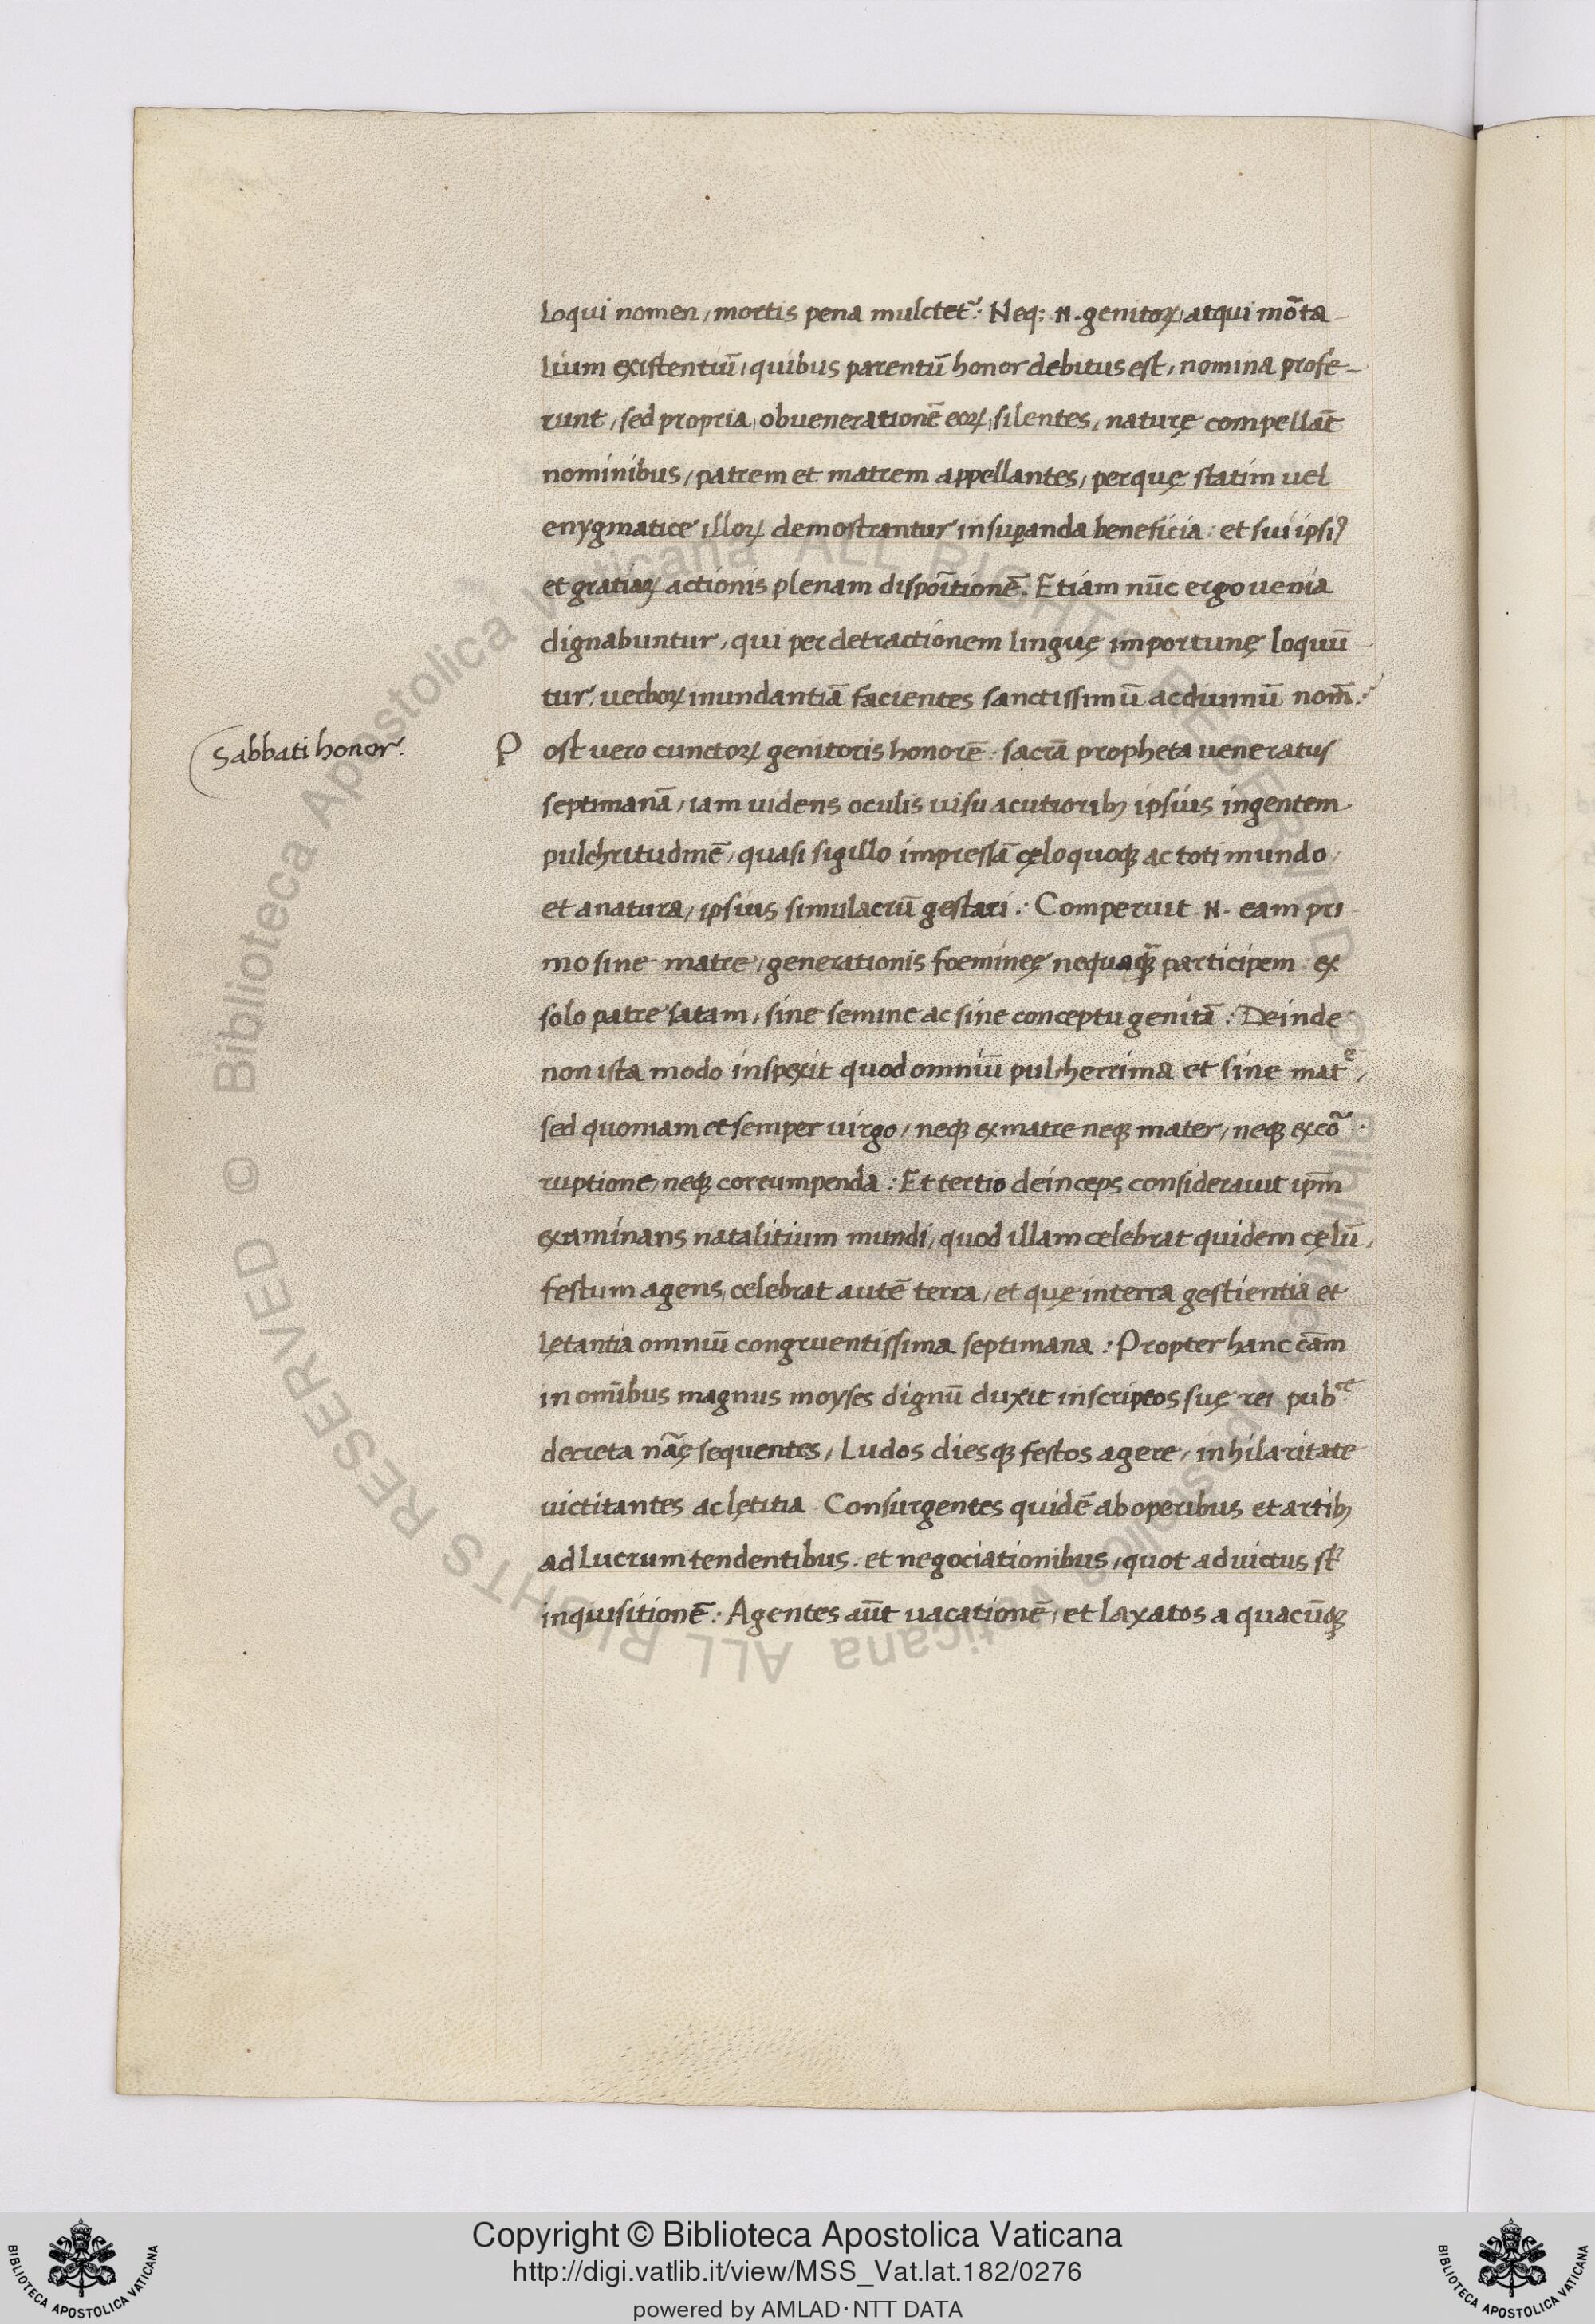 loqui nomen, mortis pena mulctet᷑: Neq: N. genitoꝝ, atqui mõta-
lium existentiũ, quibus parentũ honor debitus est, nomina profe-
runt, sed propria, ob uenerationẽ eoꝝ, silentes, naturę compellãt
nominibus, patrem et matrem appellantes, per quę statim uel
enygmatice illoꝝ demostrantur insuꝑanda beneficia: et sui ipsiꝰ
et gratiaꝝ actionis plenam dispoĩtionẽ. Etiam nũc ergo uenia
dignabuntur, qui per detractionem linguę importunę loquũ
tur, uerboꝝ inundantiã facientes sanctissimũ ac diuinũ nom̃:
Sabbati honor.
Post uero cunctoꝝ genitoris honorẽ: sacrã propheta ueneratus
septimanã, iam uidens oculis uisu acutiorib; ipsius ingentem
pulchritudinẽ, quasi sigillo impressã cęlo quoqꝫ ac toti mundo:
et a natura, ipsius simulacrũ gestari: Comperuit N. eam pri-
mo sine matre, generationis foeminęę nequaqꝫ̃ participem: ex
solo patre satam, sine semine ac sine conceptu genitã: Deinde
non ista modo inspexit quod omniũ pulcherrima et sine matͤ,
sed quoniam et semper uirgo, neqꝫ ex matre neqꝫ mater, neqꝫ ex cõ-
ruptione, neqꝫ corrumpenda: Et tertio deinceps considerauit ip̃m
examinans natalitium mundi, quod illam celebrat quidem cęlũ,
festum agens, celebrat autẽ terra, et quę in terra gestientia et
lętantia omniũ congruentissima septimana: Propter hanc cãm
in om̃ibus magnus moyses dignũ duxit inscriptos suę rei pub᷑ͨͤ
decreta nãę sequentes, Ludos diesqꝫ festos agere, in hilaritate
uictitantes ac lętitia Consurgentes quidẽ ab operibus et artib;
ad Lucrum tendentibus: et negociationibus, quot ad uictus st̃
inquisitionẽ: Agentes aũt uacationẽ, et laxatos a quacũqꝫ
Copyright © Biblioteca Apostolica Vaticana
http://digi.vatlib.it/view/MSS_Vat.lat.182/0276
powered by AMLAD·NTT DATA